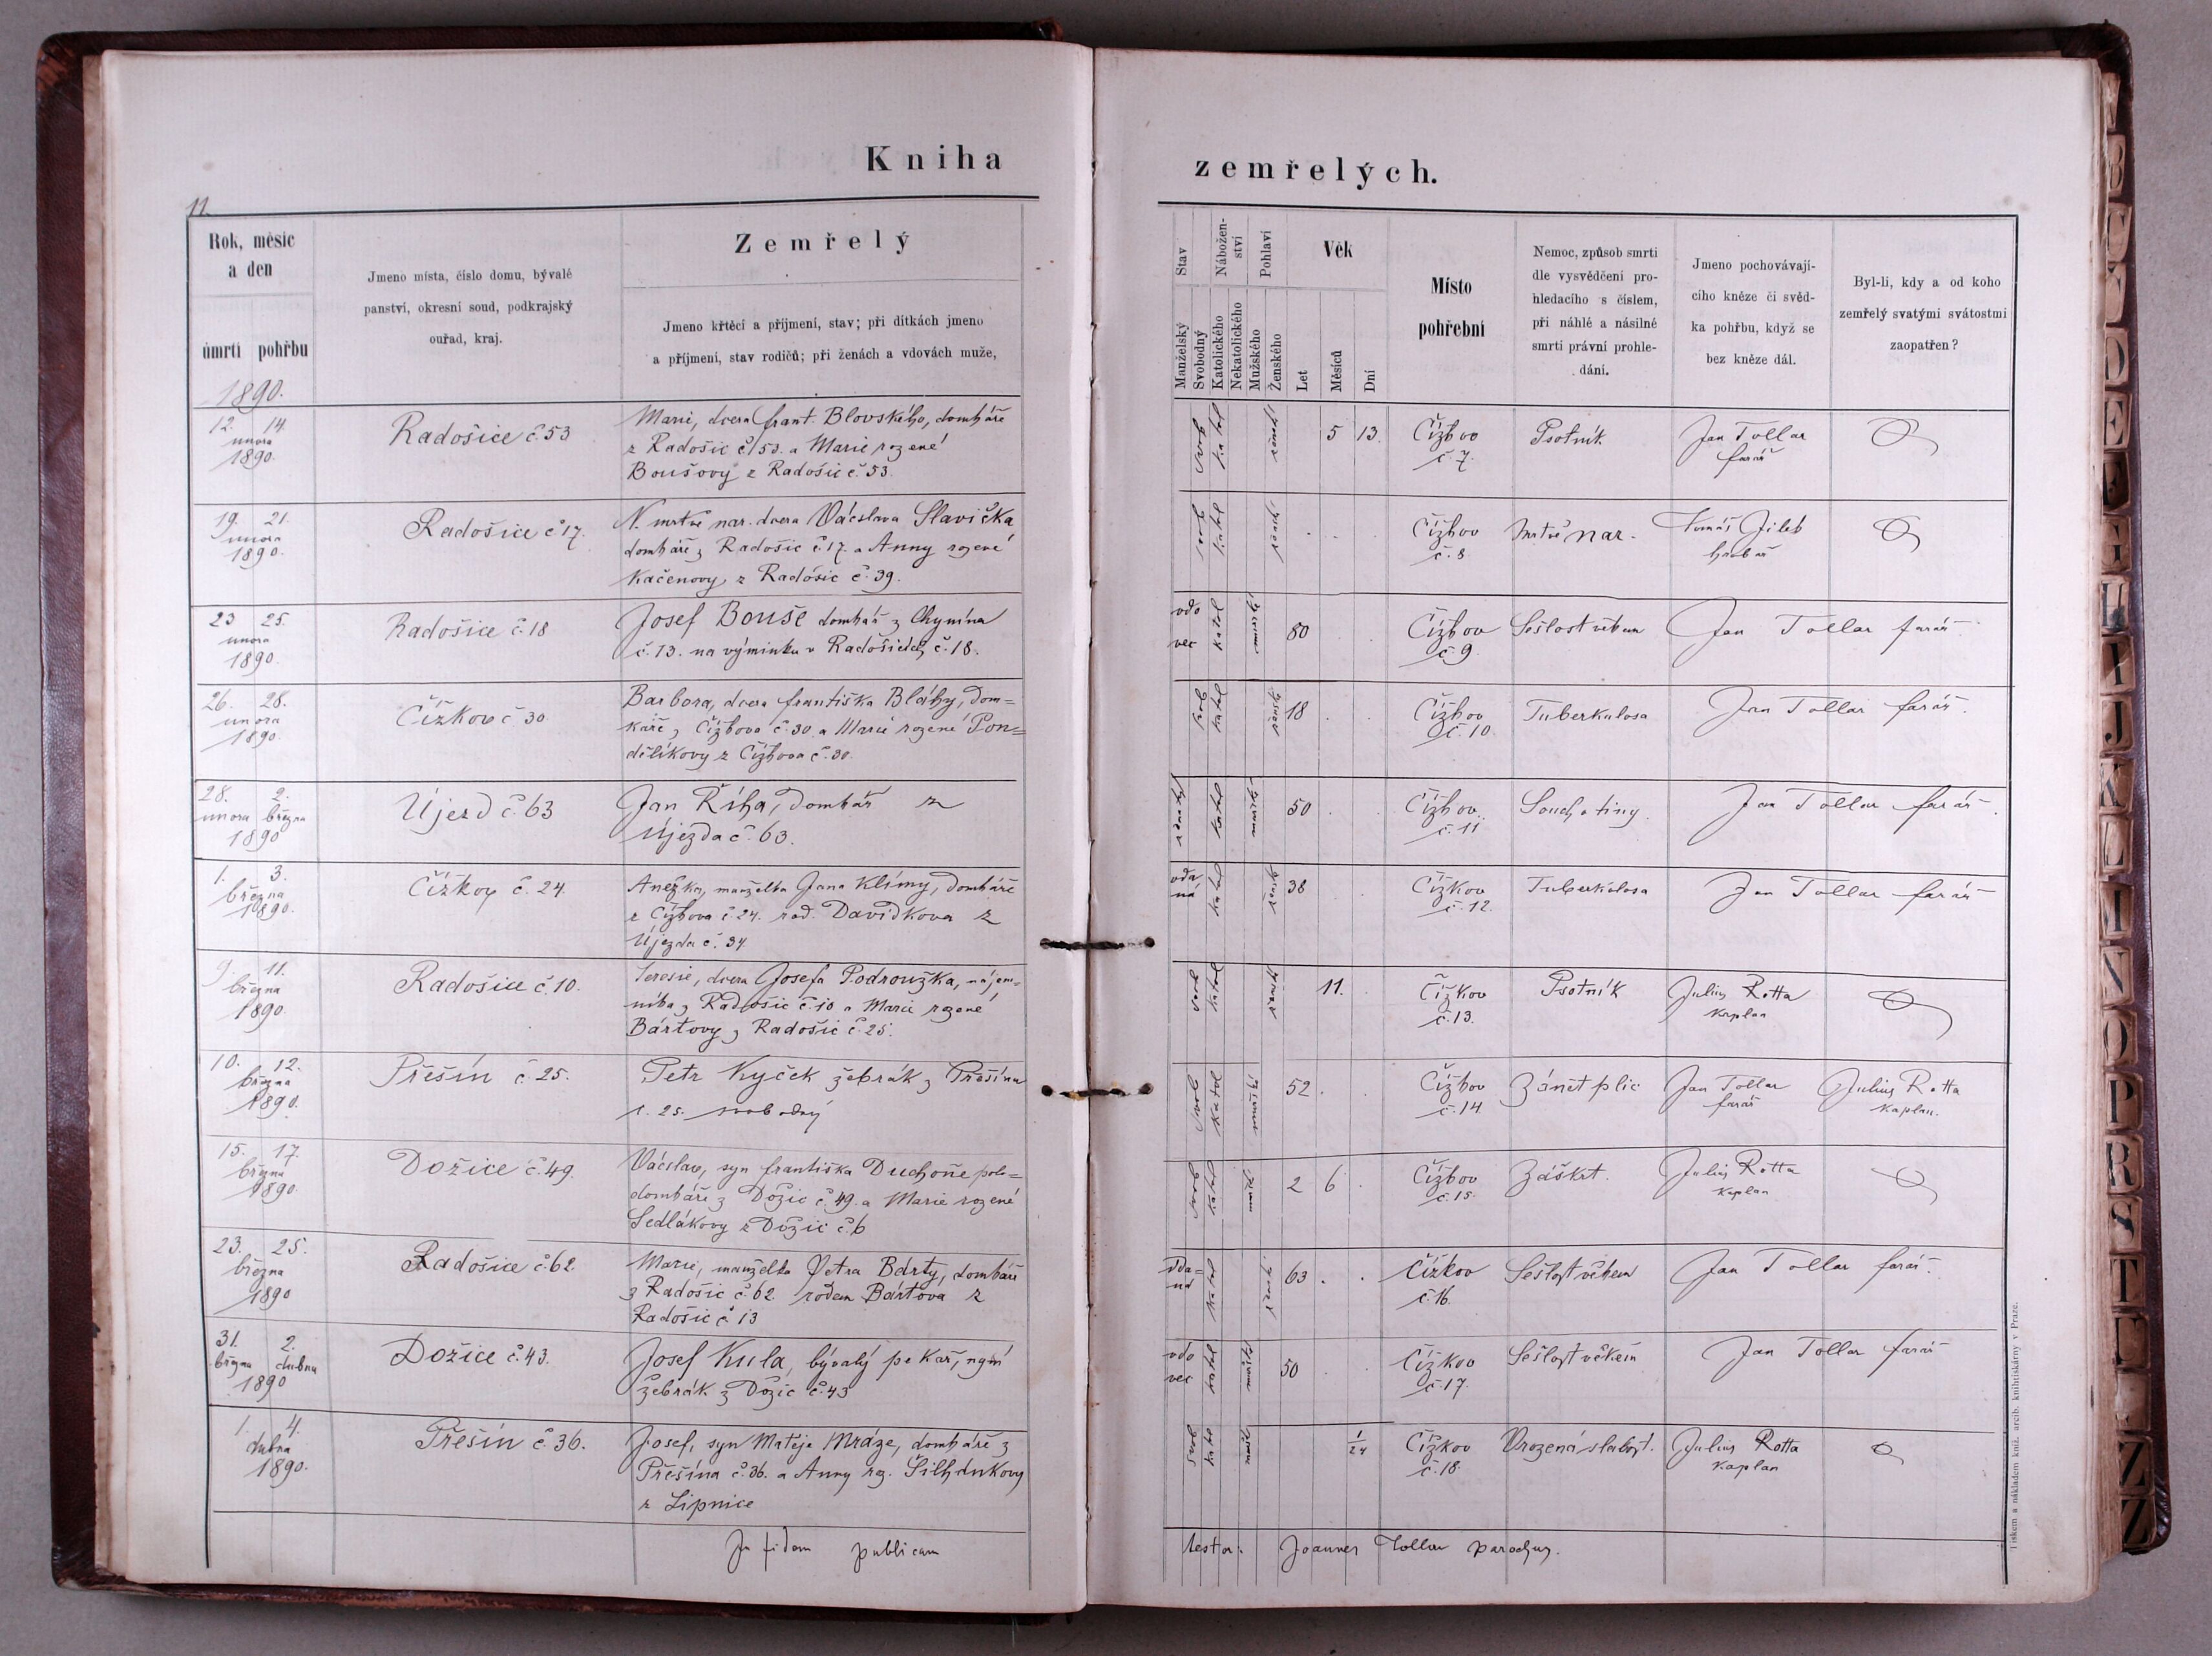 Kniha
zemřelých.
11.
Rok, měsíc
a den
úmrtí pohřbu
Jmeno místa, číslo domu, bývalé
panství, okresní soud, podkrajský
ouřad, kraj.
Zemřelý
Jmeno křtěcí a příjmení, stav; při dítkách jmeno
a příjmení, stav rodičů; při ženách a vdovách muže,
Stav
Manželský
Svobodný
Nábožen-
ství
Katolického
Nekatolického
Pohlaví
Mužského
Ženského
Věk
Let
Měsíců
Dní
Místo
pohřební
Nemoc, způsob smrti
dle vysvědčení pro-
hledacího s číslem,
při náhlé a násilné
smrti právní prohle-
dání.
Jmeno pochovávají-
cího kněze či svěd-
ka pohřbu, když se
bez kněze dál.
Byl-li, kdy a od koho
zemřelý svatými svátostmi
zaopatřen?
1890.
12. 14.
února
1890.
Radošice č. 53
Marie, dcera Frant. Blovského, domkáře
z Radošic č. 53. a Marie rozené
Boušovy z Radošic č. 53.
svob
katol
žensk
5 13.
Čížkov
č. 7.
Psotník
Jan Tollar
farář
19. 21.
února
1890.
Radošice č. 17.
N. mrtvě nar. dcera Václava Slavíčka
domkáře z Radošic č. 17. a Anny rozené
Kačenovy z Radošic č. 39.
svob
katol
žensk
Čížkov
č. 8
mrtvě nar.
Tomáš Jílek
hrobař
23 25.
února
1890.
Radošice č. 18
Josef Bouše domkář z Chynína
č. 13. na výminku v Radošicích č. 18.
vdo
vec
katol
mužské
80
Čížkov
č. 9.
Sešlost věkem
Jan Tollar farář
26. 28.
února
1890.
Čížkov č. 30.
Barbora, dcera Františka Bláhy, dom-
káře z Čížkova č. 30. a Marie rozené Pon-
dělíkovy z Čížkova č. 30.
svob
katol
žensk
18
Čížkov
č. 10.
Tuberkulosa
Jan Tollar farář.
28. 2.
února března
1890
Újezd č. 63
Jan Říha, domkář z
Újezda č. 63.
ženatý
katol
mužské
50
Čížkov
č. 11
Souchotiny.
Jan Tollar farář.
1. 3.
března
1890.
Čížkov č. 24.
Anežka, manželka Jana Klímy, domkáře
z Čížkova č. 24. rod. Davídkova z
Újezda č. 34.
vda
ná
katol
žensk
38
Čížkov
č. 12.
Tuberkulosa
Jan Tollar farář
9. 11.
března
1890.
Radošice č. 10.
Teresie, dcera Josefa Podroužka, nájem-
níka z Radošic č. 10 a Marie rozené
Bártovy z Radošic č. 25.
svob
katol
žensk
11.
Čížkov
č. 13.
Psotník
Julius Rotta
kaplan
10. 12.
března
1890.
Přešín č. 25.
Petr Kyček žebrák z Přešína
č. 25. svobodný
svob
katol
mužské
52.
Čížkov
č. 14
Zánět plic
Jan Tollar
farář
Julius Rotta
kaplan.
15. 17.
března
1890.
Dožice č. 49.
Václav, syn Františka Duchoně polo-
domkáře z Dožic č. 49. a Marie rozené
Sedlákovy z Dožic č. 6
svob
katol
mužs
2 6
Čížkov
č. 15.
Záškrt.
Julius Rotta
kaplan
23. 25.
března
1890
Radošice č. 62.
Marie, manželka Petra Bárty, domkáře
z Radošic č. 62. rodem Bártova z
Radošic č. 13
vda-
ná
katol
žensk
63.
Čížkov
č. 16.
Sešlost věkem
Jan Tollar farář.
31. 2.
března dubna
1890
Dožice č. 43.
Josef Kula, bývalý pekař, nyní
žebrák z Dožic č. 43
vdo
vec
katol
mužské
50
Čížkov
č. 17.
Sešlost věkem
Jan Tollar farář
1. 4.
dubna
1890.
Přešín č. 36.
Josef, syn Matěje Mráze, domkáře z
Přešína č. 36. a Anny roz. Šilhánkovy
z Lipnice
svob
kato
mužs
1/24
Čížkov
č. 18.
Vrozená slabost.
Julius Rotta
kaplan
In fidem publicam
testor: Joannes Tollar parochus.
Tiskem a nákladem kníž. arcib. knihtiskárny v Praze.